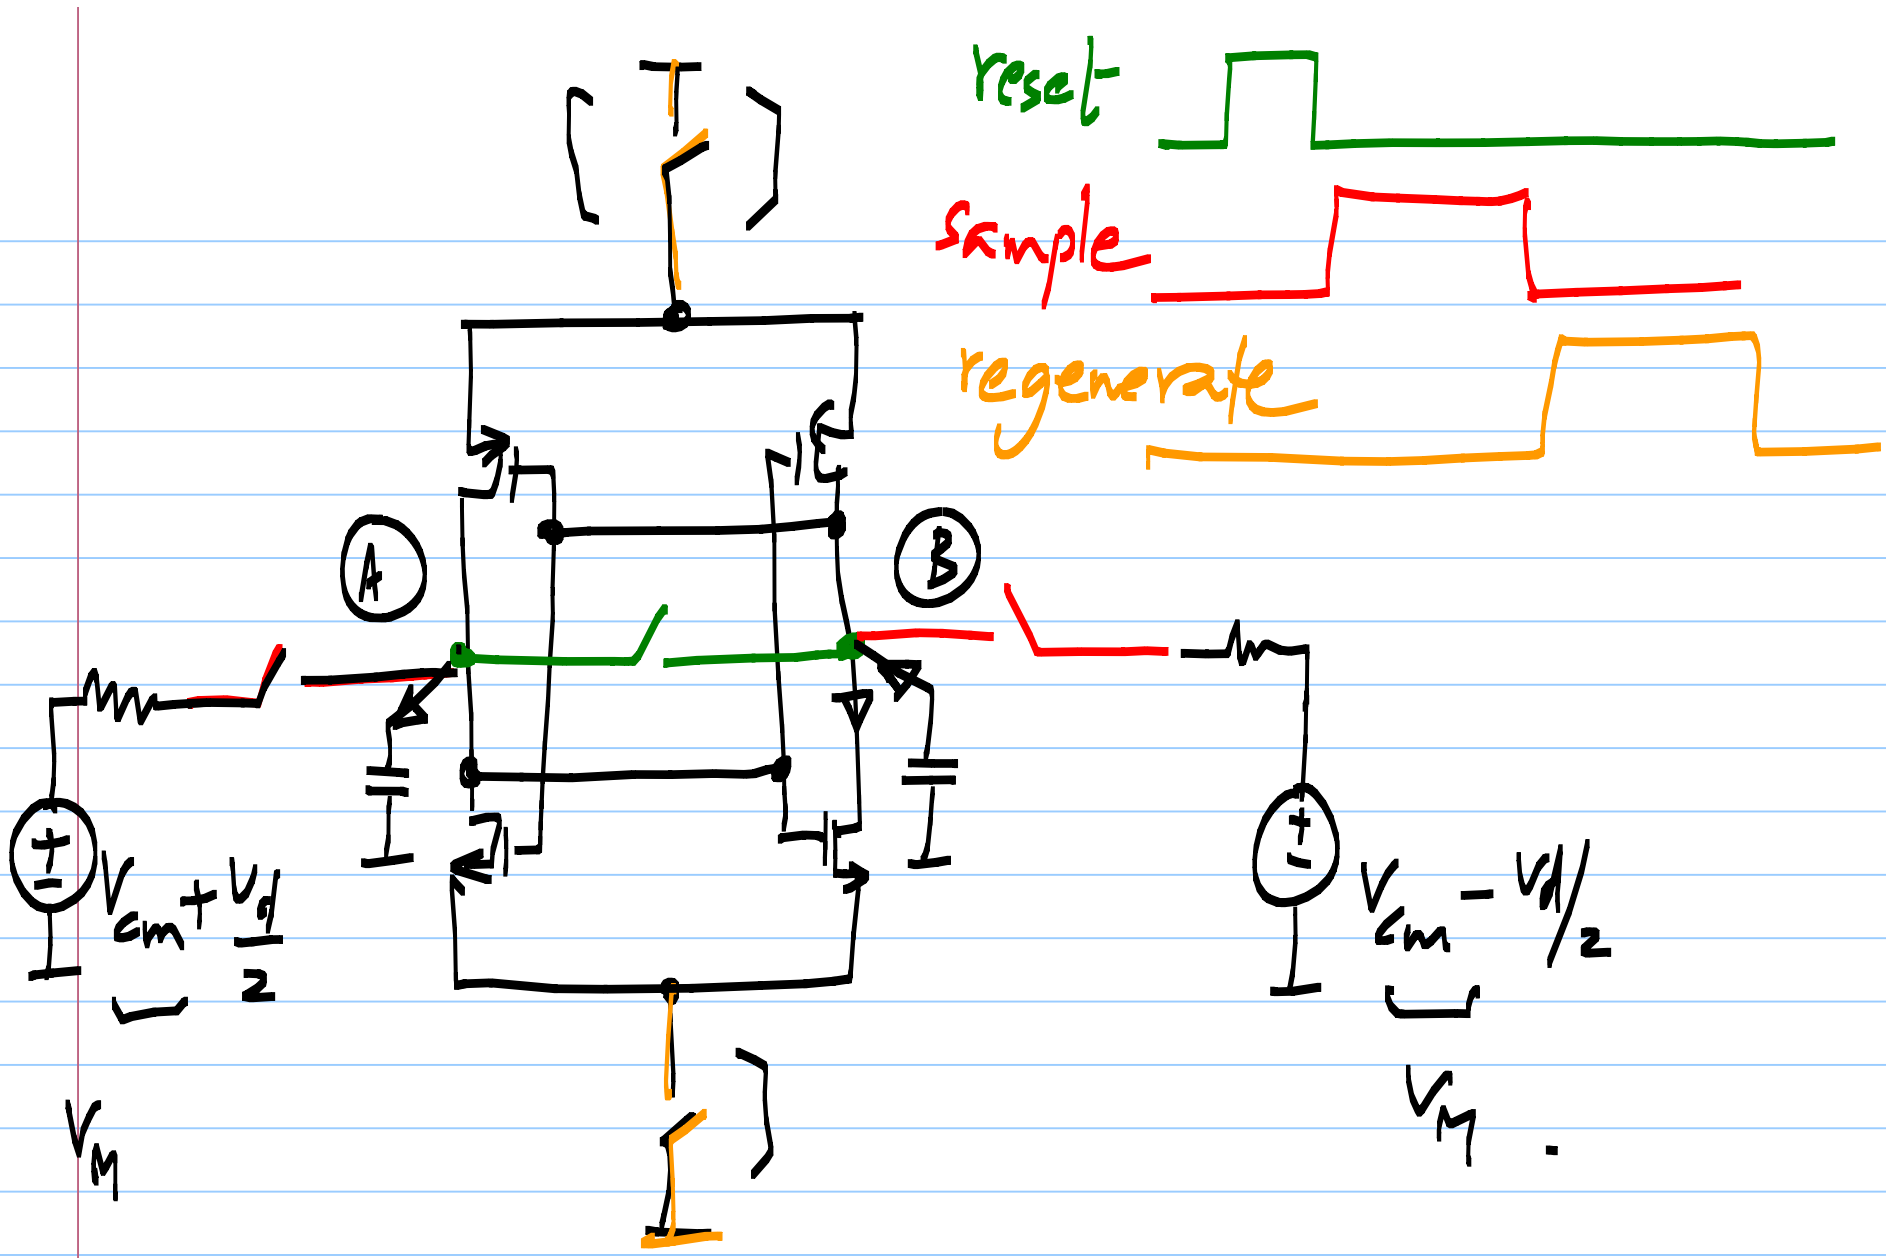 reset
sample
regenerate
A
B
+
−
Vcm + Vd/2
VM
+
−
Vcm − Vd/2
VM .